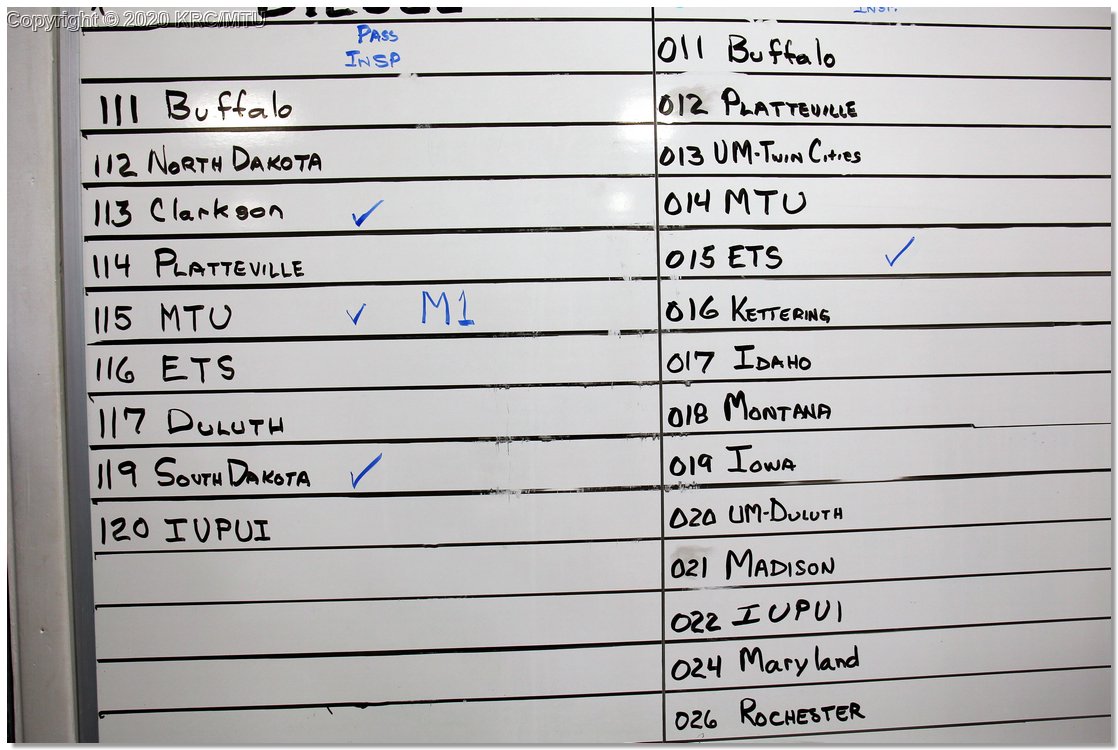 Copyright © 2020 KRC/MTU
DIESEL
PASS
INSP
111 Buffalo
112 NORTH DAKOTA
113 Clarkson ✓
114 PLATTEVILLE
115 MTU ✓ M1
116 ETS
117 DULUTH
119 SOUTH DAKOTA ✓
120 IUPUI
INSP.
011 Buffalo
012 PLATTEVILLE
013 UM-TWIN CITIES
014 MTU
015 ETS ✓
016 KETTERING
017 IDAHO
018 MONTANA
019 IOWA
020 UM-DULUTH
021 MADISON
022 IUPUI
024 Maryland
026 ROCHESTER